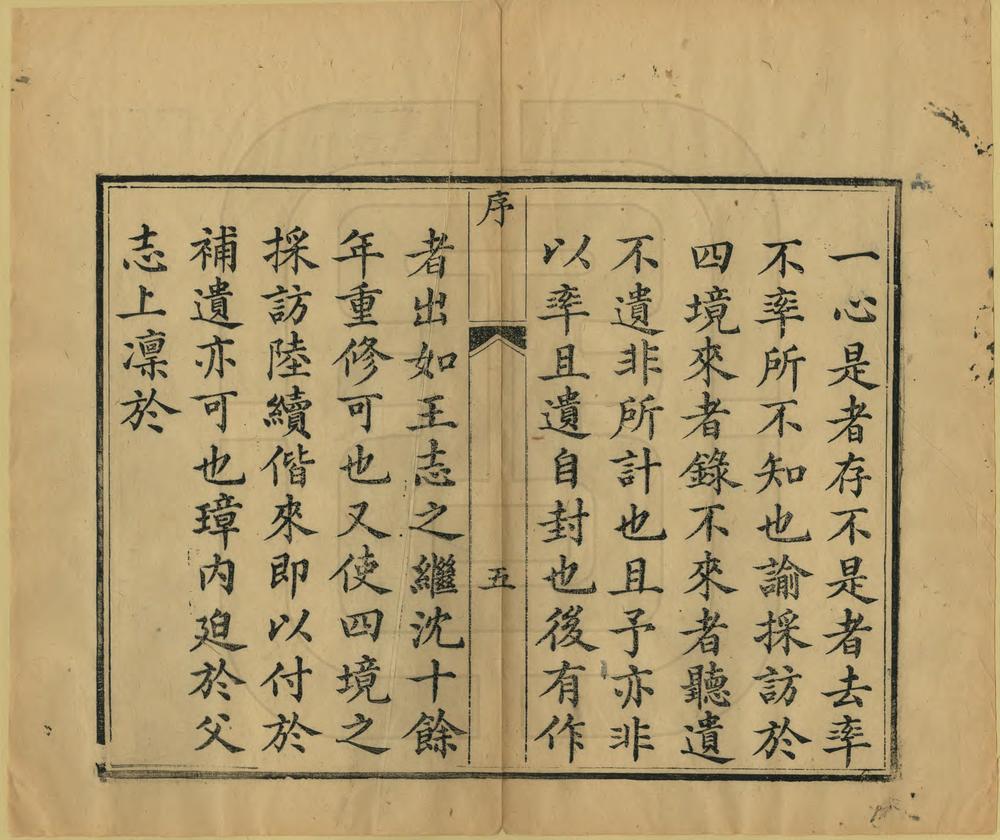 一心是者存不是者去率
不率所不知也諭採訪於
四境來者錄不來者聽遺
不遺非所計也且予亦非
以率且遺自封也後有作
序
五
者出如王志之繼沈十餘
年重修可也又使四境之
採訪陸續偕來即以付於
補遺亦可也璋内廹於父
志上凜於